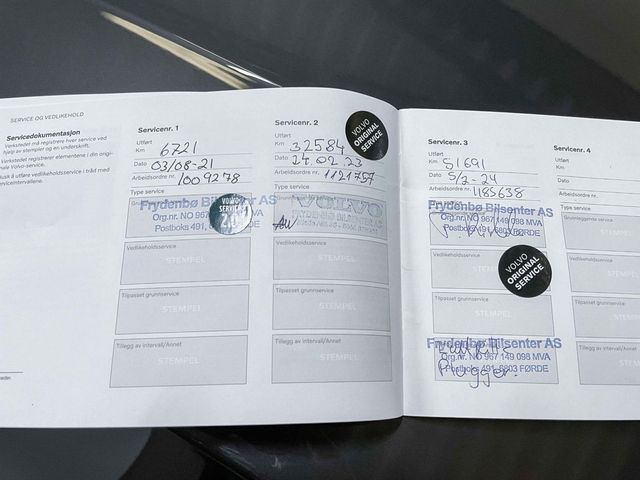 SERVICE OG VEDLIKEHOLD
Servicedokumentasjon
Verkstedet må registrere hver service ved
hjelp av stempler og en underskrift.
Verkstedet registrerer elementene i din origi-
nale Volvo-service.
Husk å utføre vedlikeholdet i tråd med
serviceintervallene.
Servicenr. 1
Utført
Km 6721
Dato 03/08-21
Arbeidsordre nr. 1009278
Type service
Frydenbø Bilsenter AS
Org.nr. NO 967
Postboks 491,
VOLVO
SERVICE
Vedlikeholdsservice
STEMPEL
Tilpasset grunnservice
STEMPEL
Tillegg av intervall/Annet
STEMPEL
Servicenr. 2
Utført
Km 32584
Dato 24.02.23
Arbeidsordre nr. 1121757
Type service
VOLVO
ORIGINAL
SERVICE
VOLVO
FRYDENBØ BILSENTER AS
AW
Vedlikeholdsservice
STEMPEL
Tilpasset grunnservice
STEMPEL
Tillegg av intervall/Annet
STEMPEL
Servicenr. 3
Utført
Km 51691
Dato 5/2-24
Arbeidsordre nr. 1185638
Type service
Frydenbø Bilsenter AS
Org.nr. NO 967 149 098 MVA
Postboks 491, 6803 FØRDE
Vedlikeholdsservice
VOLVO
ORIGINAL
SERVICE
Tilpasset grunnservice
STEMPEL
Frydenbø Bilsenter AS
Org.nr. NO 967 149 098 MVA
Postboks 491, 6803 FØRDE
Plugger.
Servicenr. 4
Utført
Km
Dato
Arbeidsordre nr.
Type service
Grunnleggende service
STEMPEL
Vedlikeholdsservice
STEMPEL
Tilpasset grunnservice
STEMPEL
Tillegg av intervall/Annet
STEMPEL